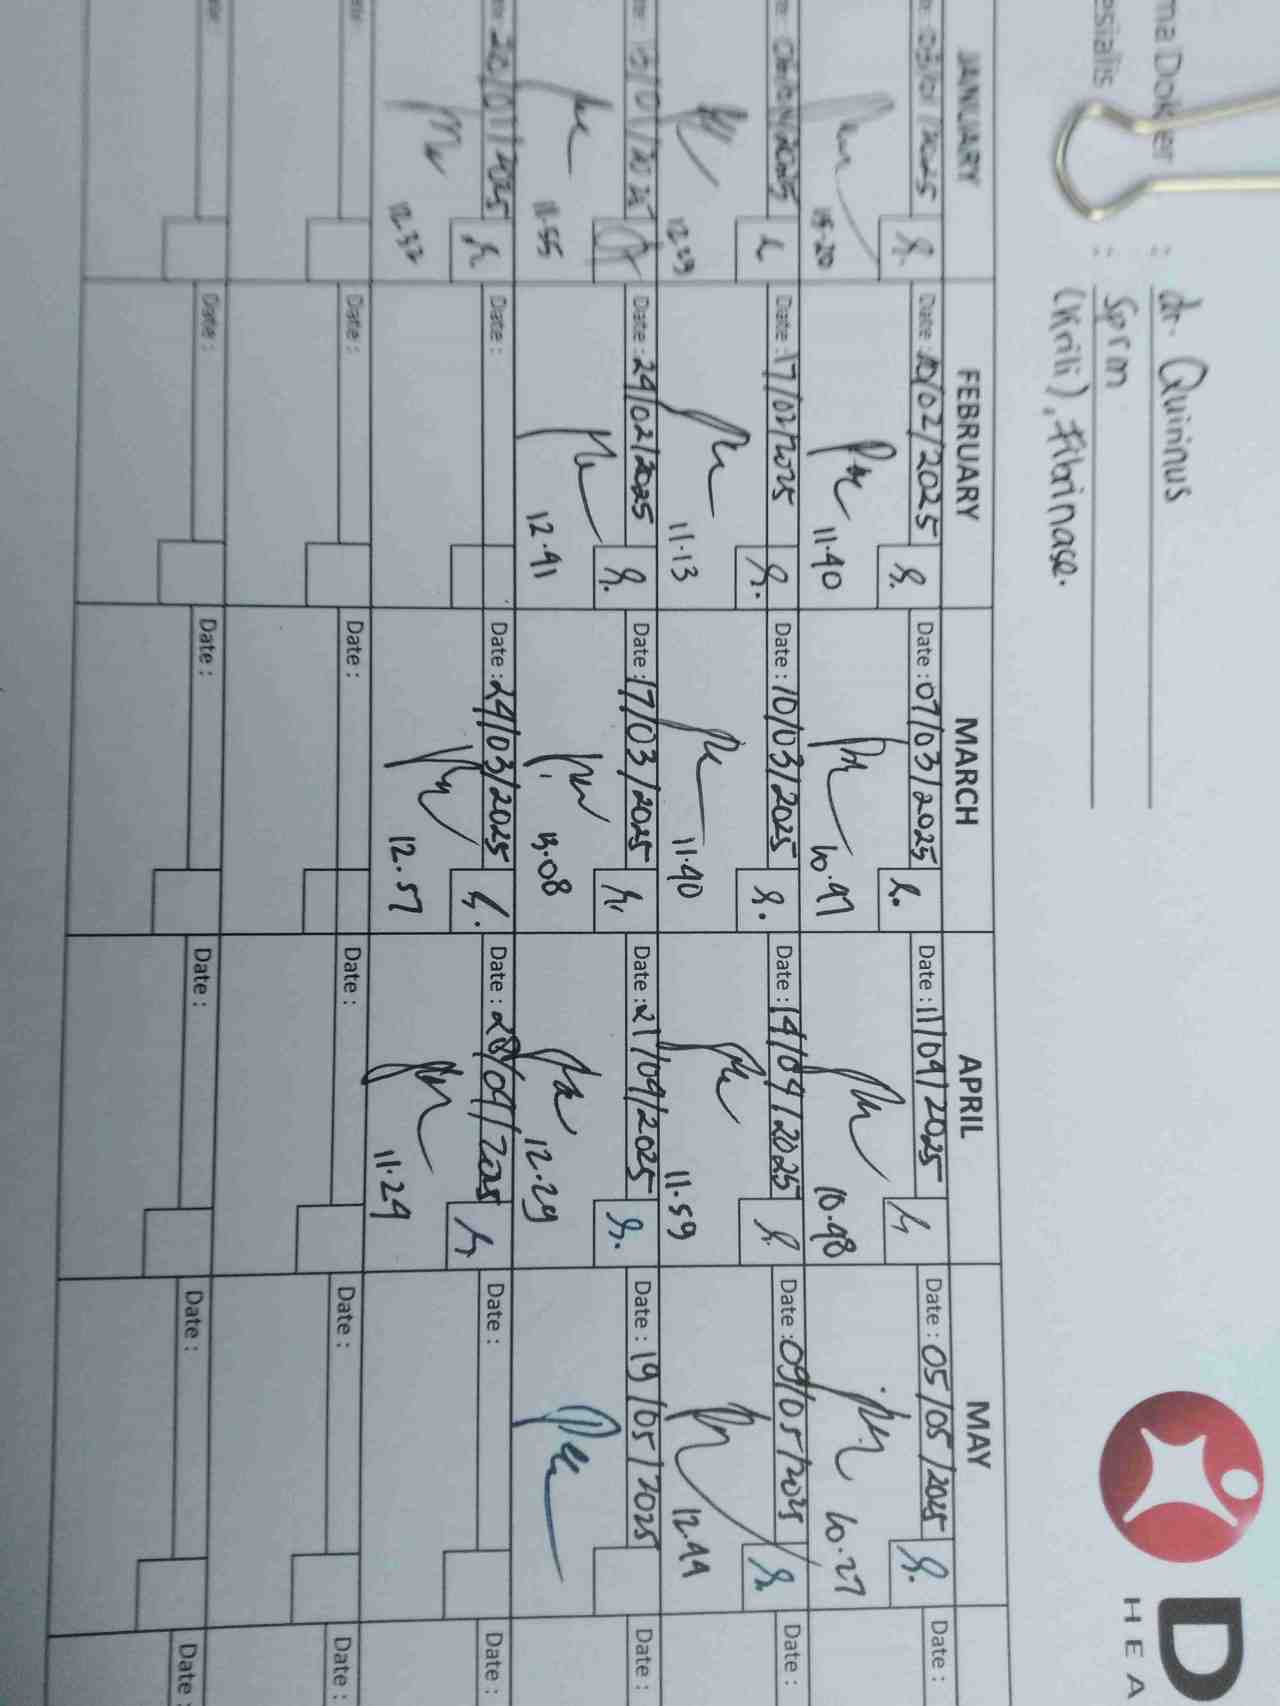 ma Dokter : dr. Quirinus
esialis : Sprm
(Krili), Fibrinase.
D
HEA
JANUARY FEBRUARY MARCH APRIL MAY
03/01/2025 Date : 10/02/2025 Date : 07/03/2025 Date : 11/04/2025 Date : 05/05/2025 Date :
15.20 11.40 10.47 10.48 10.27
06/01/2025 Date : 17/02/2025 Date : 10/03/2025 Date : 14/04/2025 Date : 09/05/2025 Date :
12.29 11.13 11.40 11.59 12.44
13/01/2025 Date : 24/02/2025 Date : 17/03/2025 Date : 21/04/2025 Date : 19/05/2025 Date :
11.55 12.41 13.08 12.29
20/01/2025 Date : Date : 24/03/2025 Date : 28/04/2025 Date : Date :
12.32 12.57 11.24
Date : Date : Date : Date : Date :
Date : Date : Date : Date : Date :